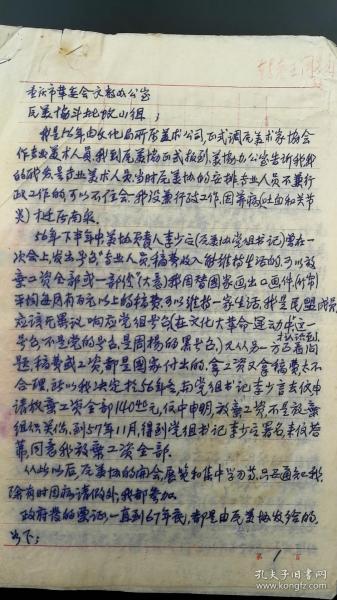 重庆市革委会文教办公室
反美协斗批改小组：
我是56年由文化局所属美术公司，正式调反美术家协会
作专业美术人员，我到反美协正式报到，美协办公室告诉我我
的职务是专业美术人员，当时反美协的安排专业人员不兼行
政工作的，可以不住会，我没兼行政工作，因养病(吐血和关节
炎)才迁居南泉。
56年下半年中美协负责人李少言(反美协党组书记)曾在一
次会上，发出号召"专业人员，稿费收入能维持生活的，可以放
弃工资全部或一部份"(大意)我因替国家画出口画件(竹帘)
平均每月有百元以上的稿费，可以维持一家生活，我是民盟成员，
应该无异议响应党组号召(在文化大革命运动中这一
号召不是党的号召，是周扬的黑号召)，
题，稿费或工资，都是国家付出的，拿工资又拿稿费太不
合理，所以我决定于56年冬，与党组书记李少言去信申
请放弃工资全部140元，信中申明，我弃工资，不是放弃
组织关系，到57年11月，得到党组书记李少言署名来信答
复，同意我放弃工资全部。
从此以后，反美协的开会，展览和集中学习等，只是通知我，
除有时因病请假外，我都参加。
政府发的票证，一直到67年底，都是由反美协发给的。
如下：
第 1 页
孔夫子旧书网